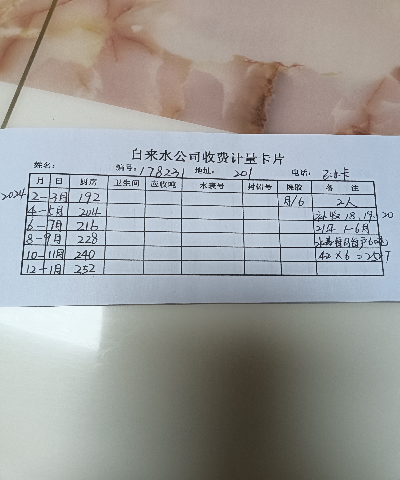 自来水公司收费计量卡片
姓名： 编号：178231 地址：201 电话：
月 日 厨房 卫生间 应收吨 水表号 封铅号 除胶 备 注
2024 2-3月 192 月/6 2人
4-5月 204 补收18.19.20
6-7月 216 21年1-6月
8-9月 228
10-11月 240 42×6=252T
12-1月 252